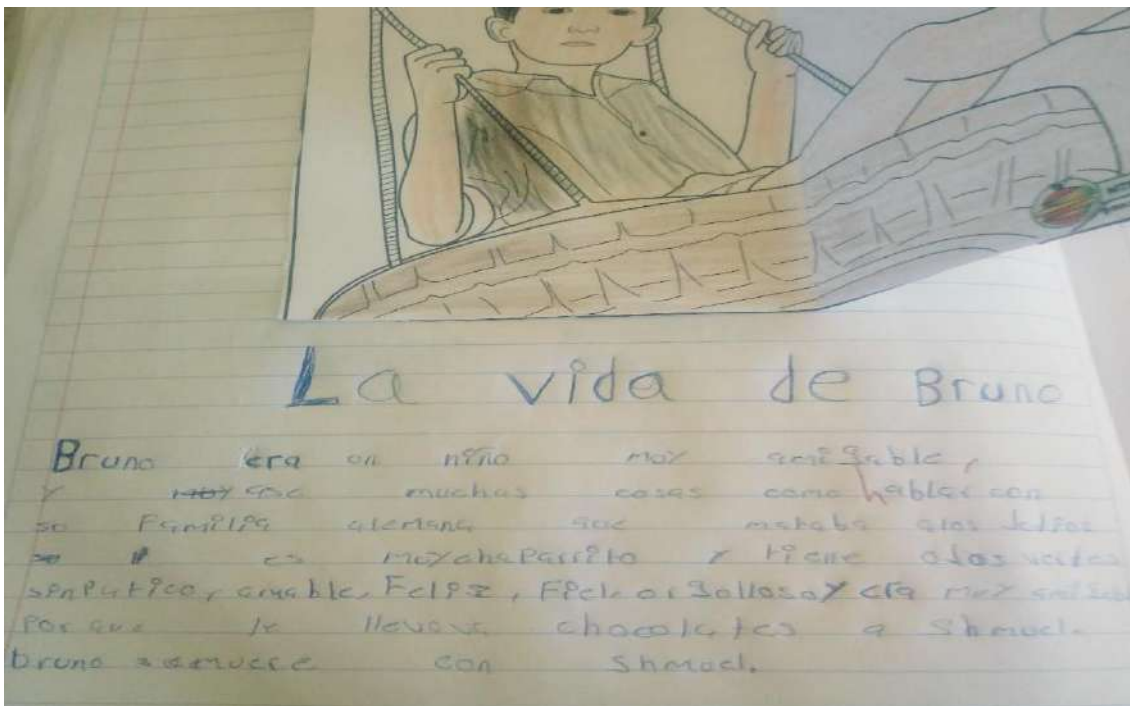 La vida de Bruno
Bruno era on niño moy amigable,
y muchas cosas como hablar con
so Familia alemana que mataba alos
es moychaparrito y tiene odos verdes
senpatico, amable, Feliz, Fiel, orgolloso y era moy
Por que le llevava chocolates a Shmuel.
bruno semuere con Shmuel.